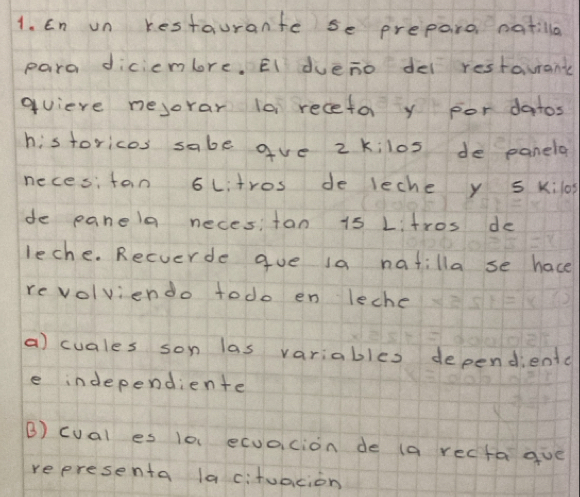 1. En un restaurante se prepara natilla
para diciembre. El dueño del restaurante
quiere mejorar la receta y por datos
historicos sabe que 2 kilos de panela
necesitan 6 Litros de leche y 5 kilos
de panela necesitan 15 Litros de
leche. Recuerde que la natilla se hace
revolviendo todo en leche
a) cuales son las variables dependiente
e independiente
B) cual es la ecuación de la recta que
representa la cituación